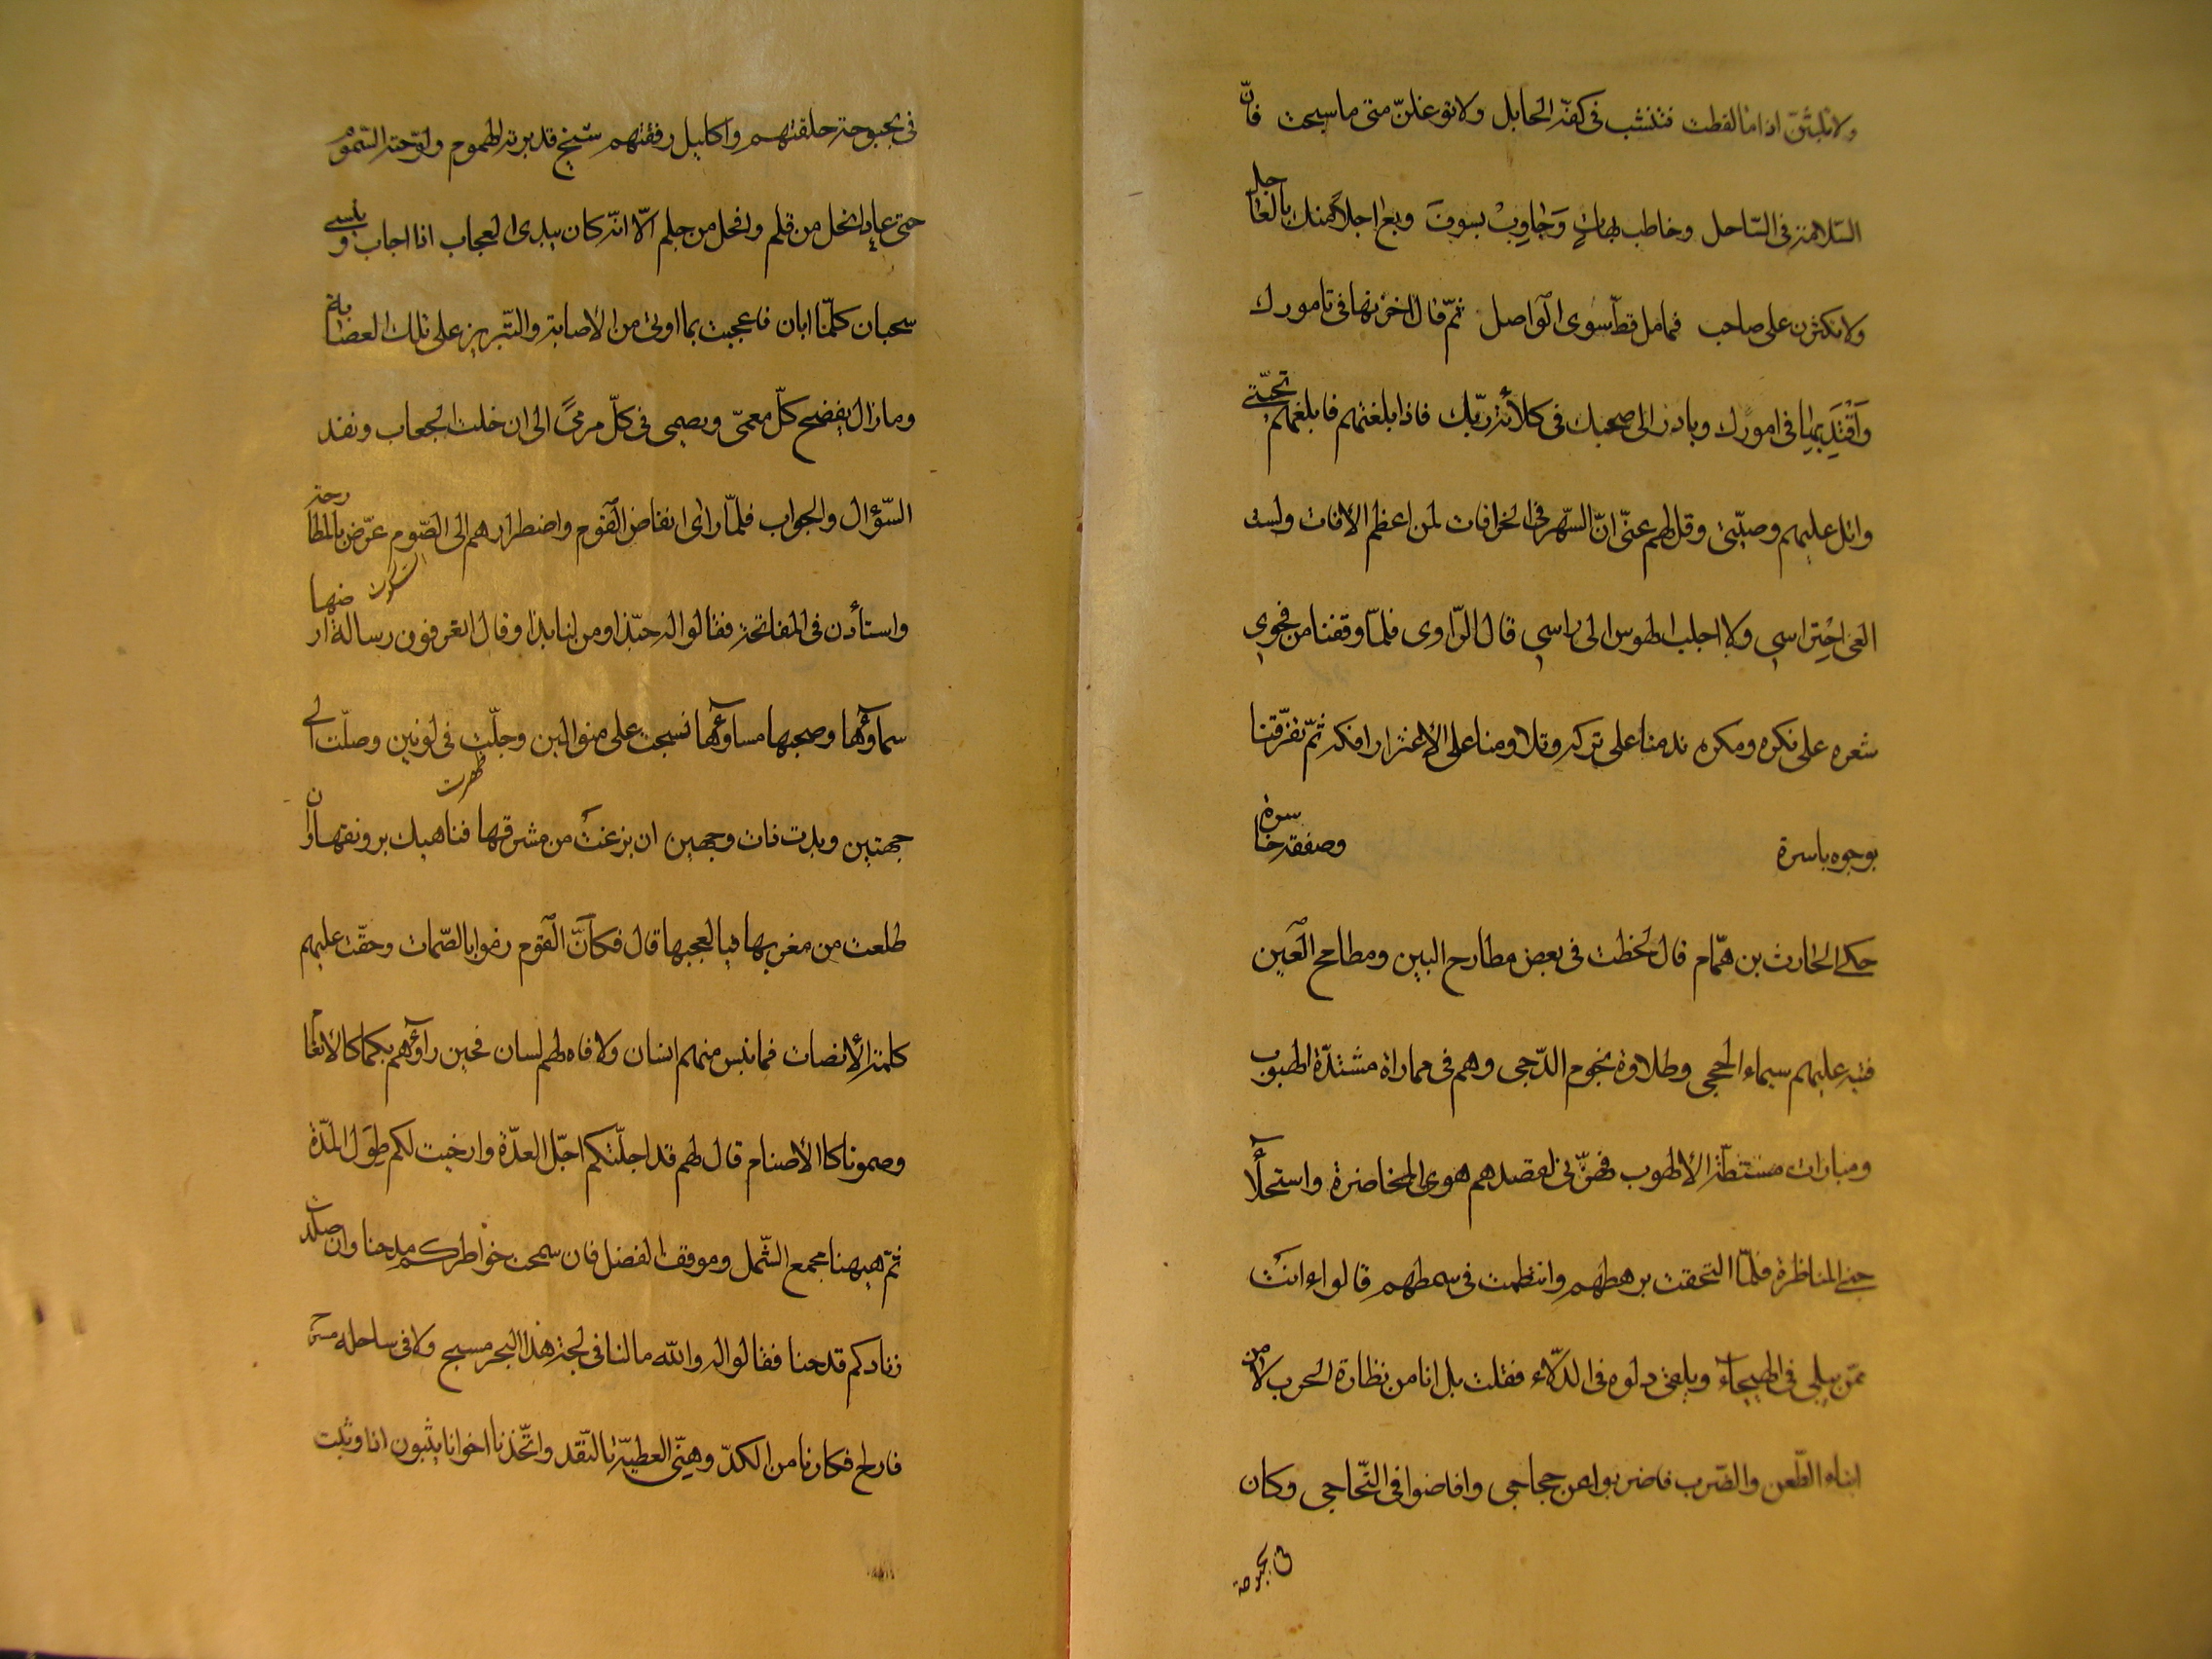 ولا تلبثنّ اذا ما لقطت فتنشب فى كفة الحابل ولا توغلنّ متى ما سبحت فانّ
السّلامة فى السّاحل وخاطب بهات وجاوب بسوف وبع اجلا منك بالعاجل
ولا تكثرن على صاحب فما مل قطّ سوى الواصل ثمّ قال اخزنها فى تامورك
وَاقتَدِ بها فى امورك وبادر الى صحبك فى كلأة ربّك فاذا بلغتهم فابلغهم تحيّتى
واتل عليهم وصيّتى وقل لهم عنّى انّ السّهر فى الخرافات لمن اعظم الافات ولست
الغى احتراسى ولا اجلب الهوس الى راسى قال الرّاوى فلمّا وقفنا من فحوى
شعره على نكره ومكره ندمنا على تركه وتلاومنا على الأغترار بافكه ثمّ تفرّقنا
بوجوه باسرة وصفقة خاسرة
حكى الحارث بن همّام قال لحظت فى بعض مطارح البين ومطامح العين
فتية عليهم سيماء الحجى وطلاوة نجوم الدّجى وهم فى مماراة مشتدّة الهبوب
ومباراة مشتطّة الألهوب فهزّنى لقصدهم هوى المحاضرة واستحلاء
جنى المناظرة فلمّا التحقت برهطهم وانتظمت فى سمطهم قالوا ءانت
ممّن يبلى فى الهيجاء ويلقى دلوه فى الدّلاء فقلت بل انا من نظارة الحرب لا من
ابناء الطّعن والضّرب فاضربوا عن حجاجى وافاضوا فى التّحاجى وكان
فى بحبوحة
فى بحبوحة حلقتهم واكليل رفقتهم شيخ قد برته الهموم ولوّحته السّموم
حتى عاد انحل من قلم واقحل من جلم الّا انّه كان يبدى العجاب اذا اجاب وينسى
سحبان كلّما ابان فاعجبت بما اوتى من الأصابة والتّبريز على تلك العصابة
وما زال يفضح كلّ معمّى ويصمى فى كلّ مرمىً الى ان خلت الجعاب ونفد
السّؤال والجواب فلمّا راى انفاض القوم واضطرارهم الى الصّوم عرّض بالمطارحة
السكوت
واستأذن فى المفاتحة فقالوا له حبّذا ومن لنا بذا وقال اتعرفون رسالة ارضها
سماؤها وصبحها مساؤها نسجت على منوالين وجلّت فى لونين وصلّت الى
ظهرت
جهتين وبدت ذات وجهين ان بزغت من مشرقها فناهيك برونقها وان
طلعت من مغربها فيا لعجبها قال فكانّ القوم رموا بالصّمات وحقّت عليهم
كلمة الأنصات فما نبس منهم انسان ولا فاه لهم لسان فحين رآؤهم بكما كالانعام
وصموتا كاالأصنام قال لهم قد اجلّتكم اجّل العدّة وارخيت لكم طِوَل المدّة
ثمّ هيهنا مجمع الشّمل وموقف الفضل فان سمحت خواطركم مدحنا وان صلدت
زنادكم قدحنا فقالوا له والله ما لنا فى لجة هذا البحر مسبح ولا فى ساحله مسرح
فارح فكارنا من الكدّ وهنّى العطيّة بالنّقد واتّخذنا اخوانا يثبون اذا وثبت